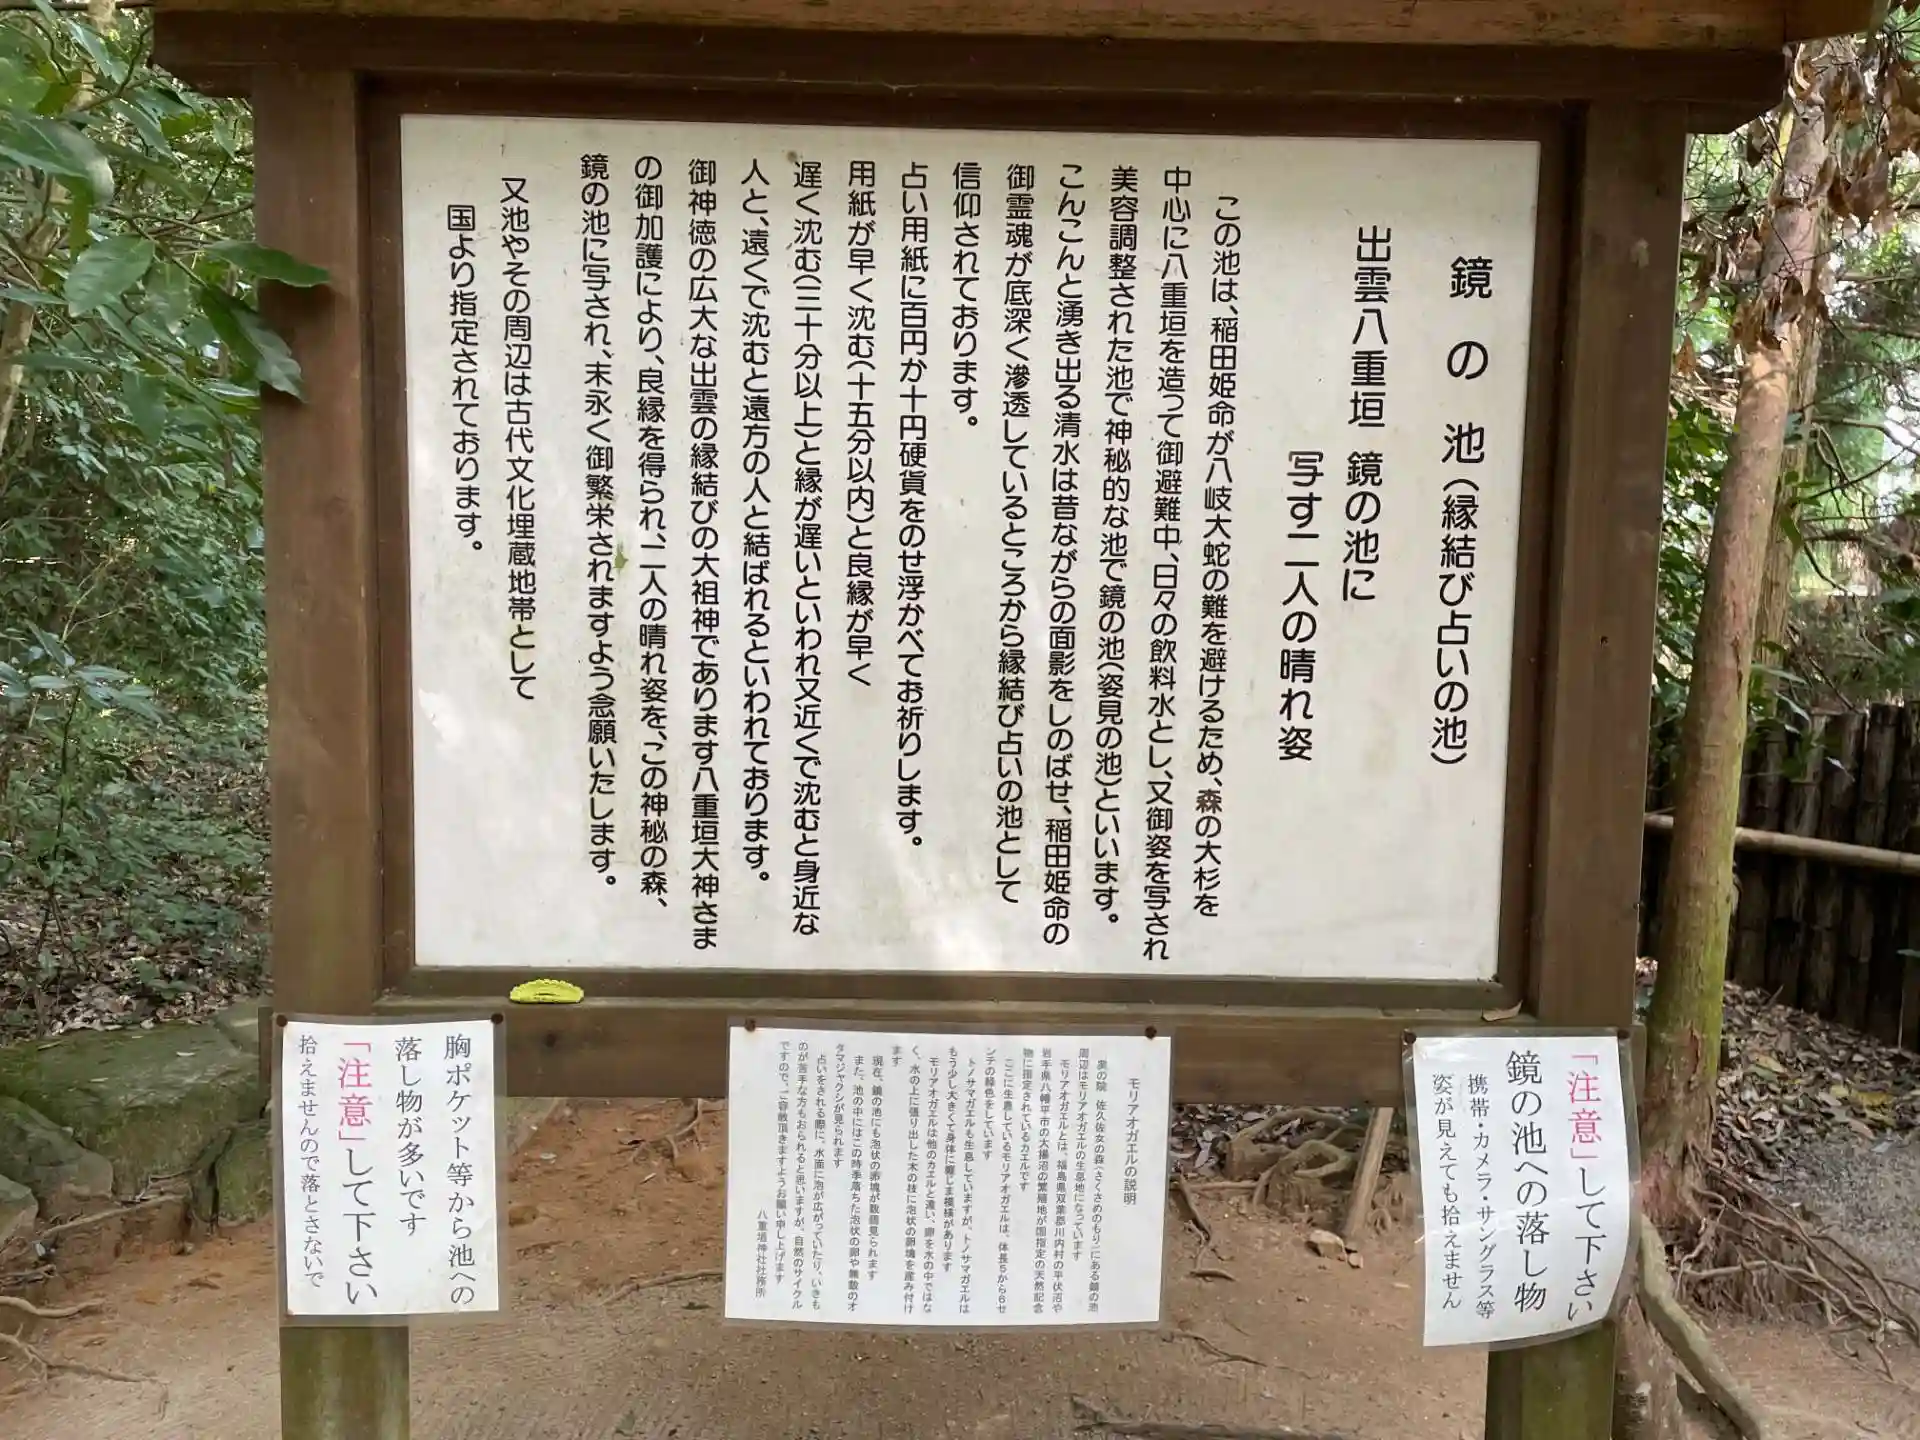 鏡の池（縁結び占いの池）
出雲八重垣 鏡の池に
写す二人の晴れ姿
この池は、稲田姫命が八岐大蛇の難を避けるため、森の大杉を
中心に八重垣を造って御避難中、日々の飲料水とし、又御姿を写され
美容調整された池で神秘的な池で鏡の池（姿見の池）といいます。
こんこんと湧き出る清水は昔ながらの面影をしのばせ、稲田姫命の
御霊魂が底深く滲透しているところから縁結び占いの池として
信仰されております。
占い用紙に百円か十円硬貨をのせ浮かべてお祈りします。
用紙が早く沈む（十五分以内）と良縁が早く
遅く沈む（三十分以上）と縁が遅いといわれ又近くで沈むと身近な
人と、遠くで沈むと遠方の人と結ばれるといわれております。
御神徳の広大な出雲の縁結びの大祖神であります八重垣大神さま
の御加護により、良縁を得られ、二人の晴れ姿を、この神秘の森、
鏡の池に写され、末永く御繁栄されますよう念願いたします。
又池やその周辺は古代文化埋蔵地帯として
国より指定されております。
「注意」して下さい
鏡の池への落し物
携帯・カメラ・サングラス等
姿が見えても拾えません
モリアオガエルの説明
奥の院 佐久佐女の森（さくさめのもり）にある鏡の池
周辺はモリアオガエルの生息地になっています
モリアオガエルとは、福島県双葉郡川内村の平伏沼や
岩手県八幡平市の大揚沼の繁殖地が国指定の天然記念
物に指定されているカエルです
ここに生息しているモリアオガエルは、体長５から６セ
ンチの緑色をしています
トノサマガエルも生息していますが、トノサマガエルは
もう少し大きくて身体に縦じま模様があります
モリアオガエルは他のカエルと違い、卵を水の中ではな
く、水の上に張り出した木の枝に泡状の卵塊を産み付け
ます
現在、鏡の池にも泡状の卵塊が数個見られます
また、池の中にはこの時季落ちた泡状の卵や無数のオ
タマジャクシが見られます
占いをされる際に、水面に泡が広がっていたり、いきも
のが苦手な方もおられると思いますが、自然のサイクル
ですので、ご容赦頂きますようお願い申し上げます
八重垣神社社務所
胸ポケット等から池への
落し物が多いです
「注意」して下さい
拾えませんので落とさないで